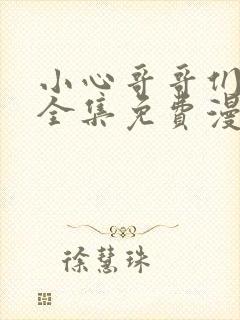 小心哥哥们
全集免费漫
徐慧珠